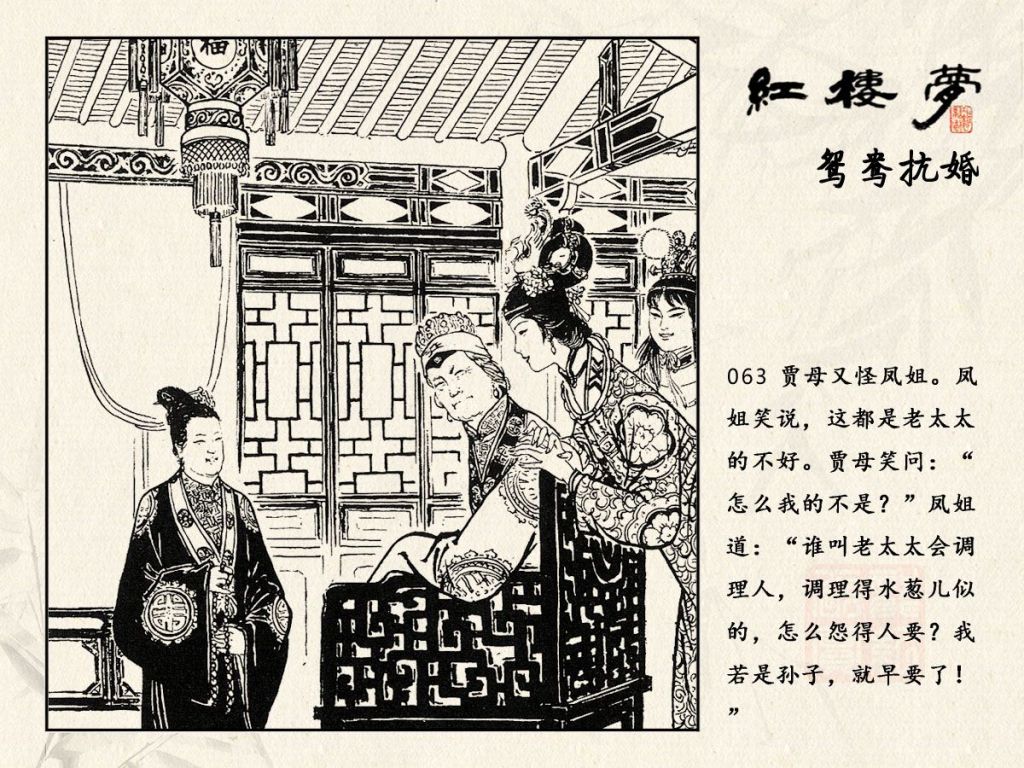 福
紅樓夢
鸳鸯抗婚
063 贾母又怪凤姐。凤
姐笑说，这都是老太太
的不好。贾母笑问：“
怎么我的不是？”凤姐
道：“谁叫老太太会调
理人，调理得水葱儿似
的，怎么怨得人要？我
若是孙子，就早要了！
”